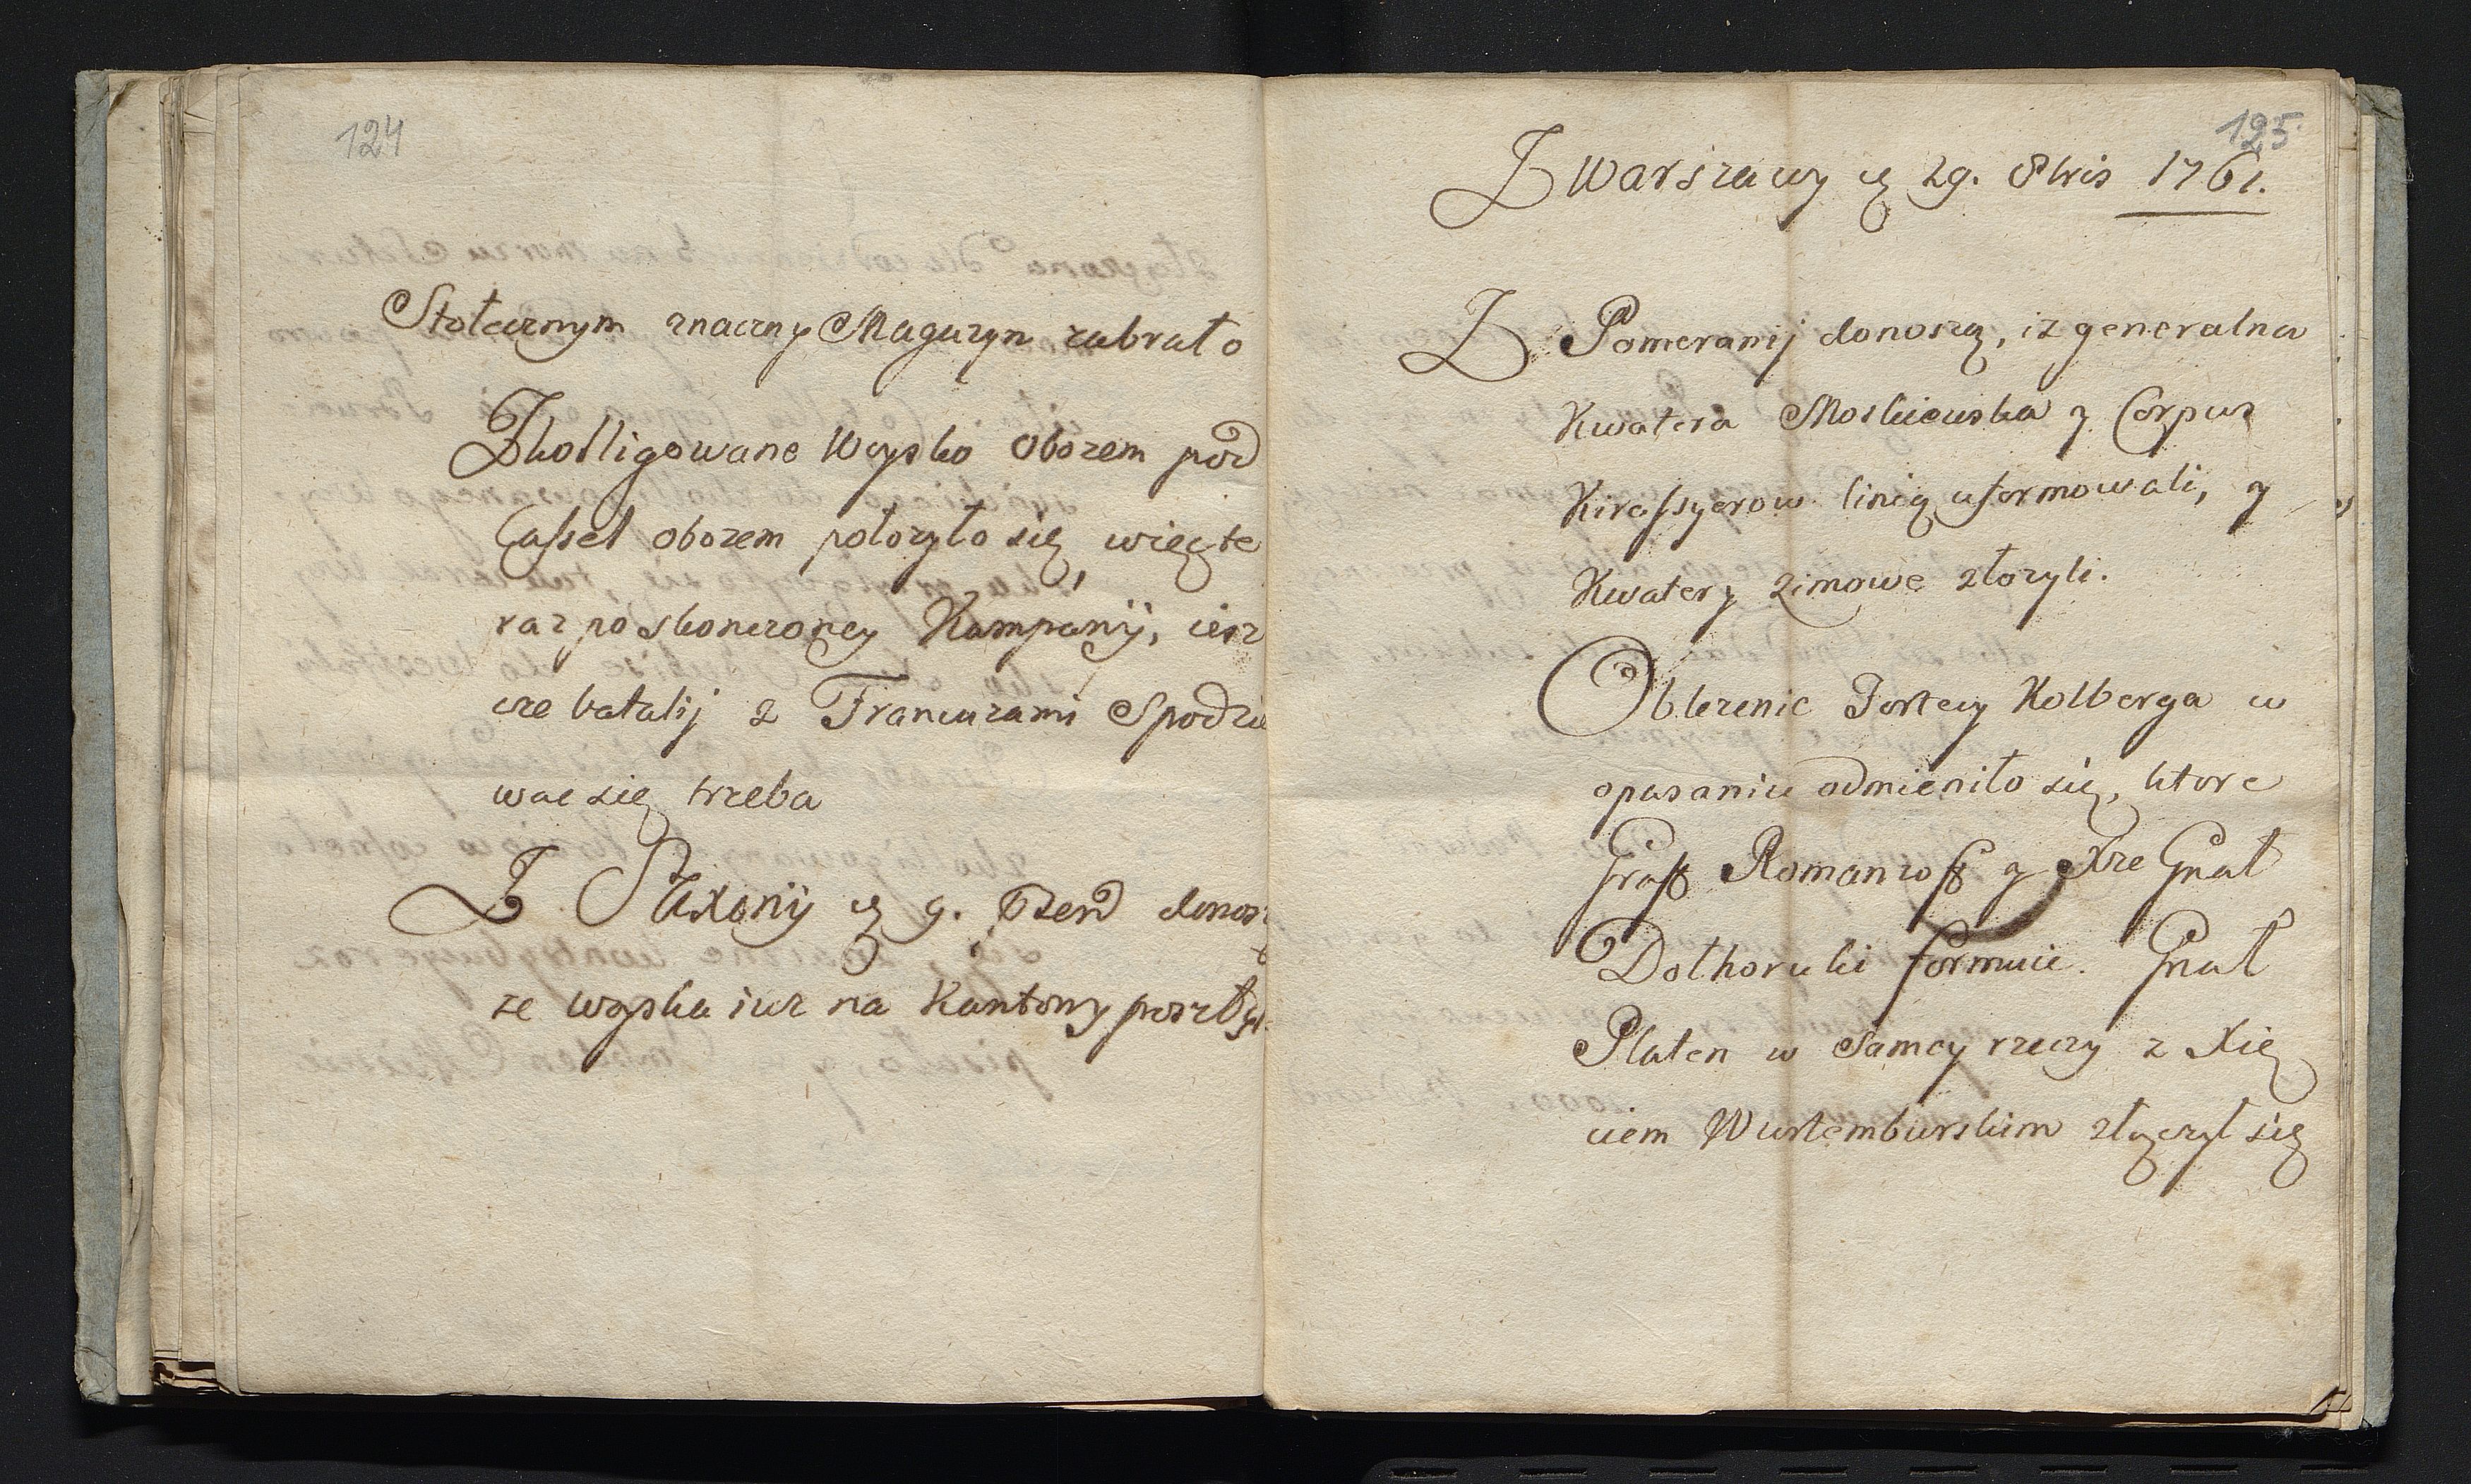 124
Stołecznym znaczny Magazyn zabrało
Zkolligowane Woysko Obozem pod
Cassel obozem położyło się, więc te
raz po skonczoney Kampanij, iesz
cze batalij z Francuzami Spodzie
wac się trzeba
Z Saxonij
ze woyska iuz na Kantony poszły
125.
Z Warszawy 29. 8bris 1761.
Z Pomeranij donoszą, iz generalna
Kwatera Moskiewska y Corpus
Kirassyerow linią uformowali, y
Kwatery zimowe złozyli.
Oblezenie Fortecy Kolberga w
opasanie odmieniło się, ktore
Graff Romanzoff y Xze Gnał
Dolhoruki formuie. Gnał
Platen w Samey rzeczy z Xię
ciem Wurtemburskim złączył się